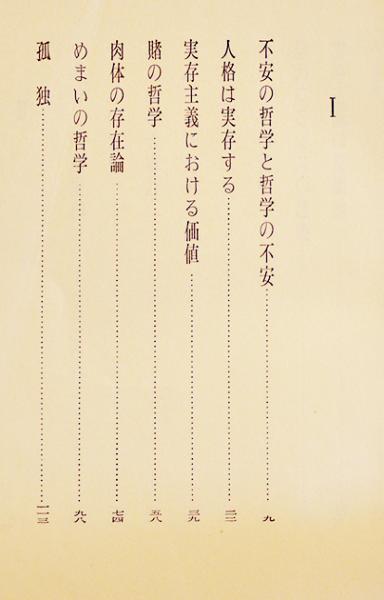 I
不安の哲学と哲学の不安 九
人格は実存する 二二
実存主義における価値 三九
賭の哲学 五八
肉体の存在論 七四
めまいの哲学 九八
孤独 一一三